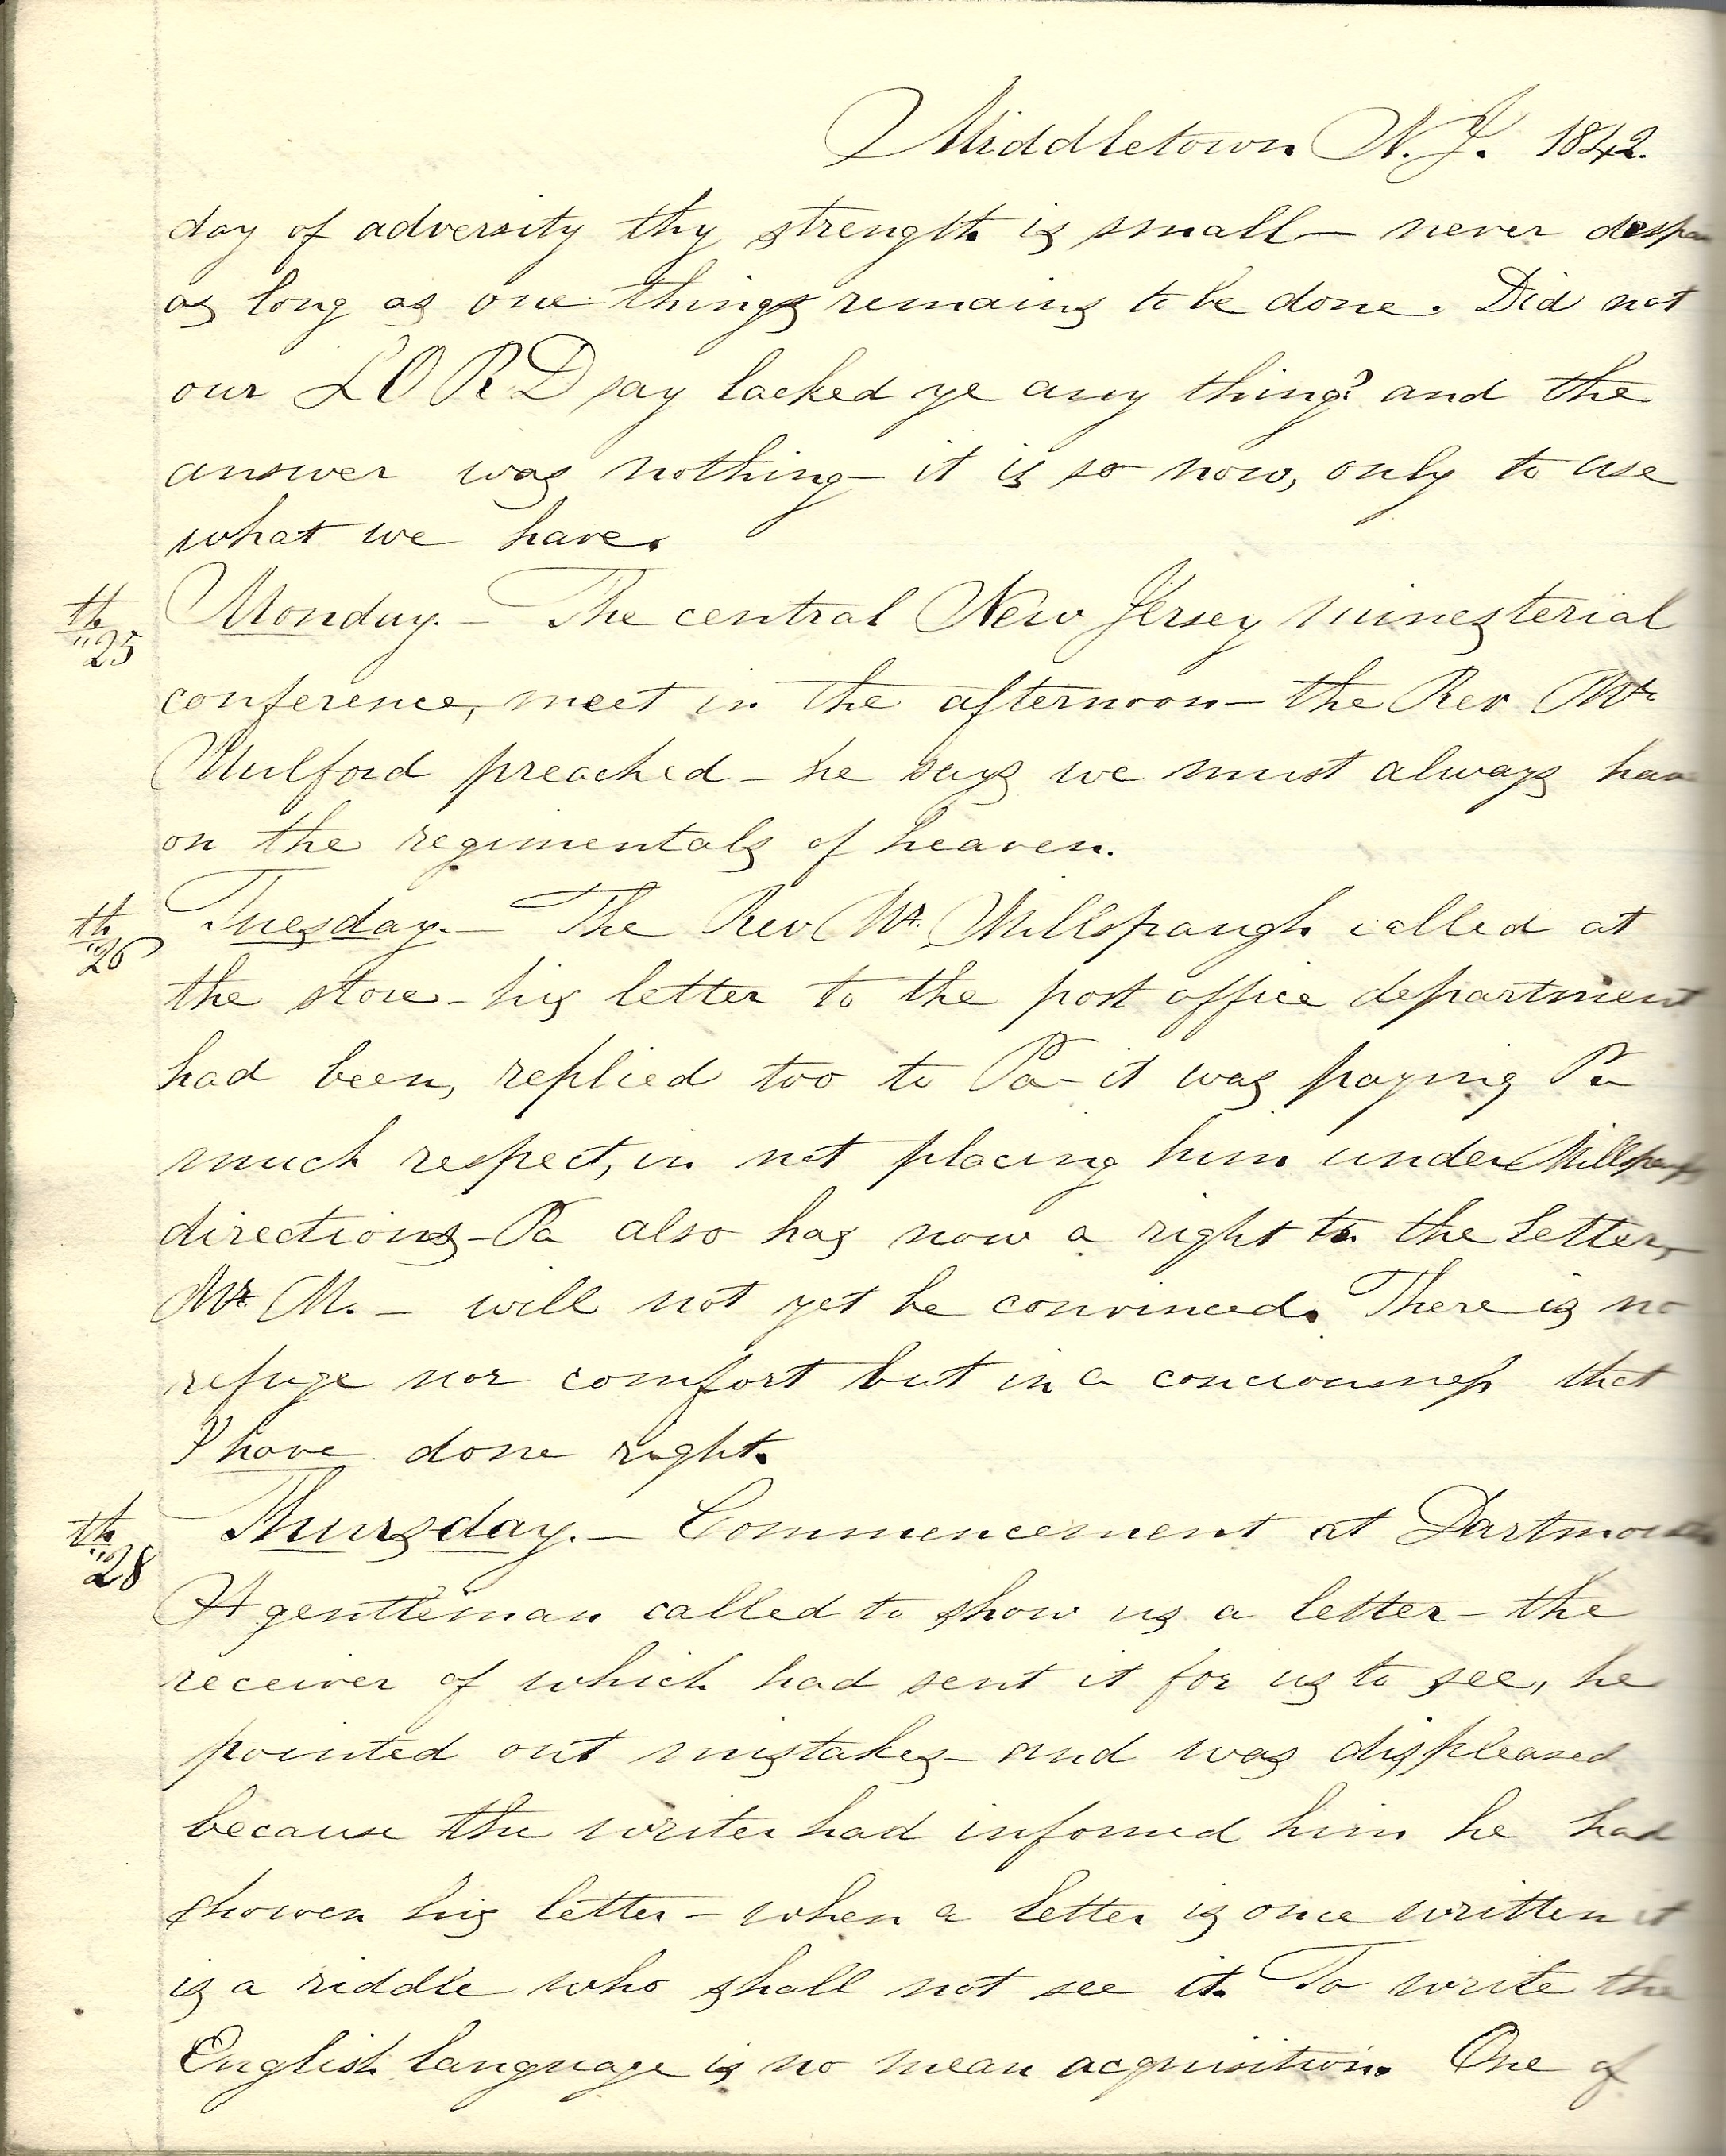 Middletown N.J. 1842.
day of adversity thy strength is small — never
as long as one things remains to be done. Did not
our LORD say lacked ye any thing? and the
answer was nothing — it is so now, only to use
what we have.
th
"25
Monday. — The central New Jersey minesterial
conference, meet in the afternoon — the Rev Mr
Mulford preached — he says we must always have
on the regimentals of heaven.
th
"26
Tuesday. — The Rev Mr. Millspaugh called at
the store — his letter to the post office department
had been, replied too to Pa — it was paying Pa
much respect, in not placing him under Millspaugh
directions — Pa also has now a right to the letter,
Mr. M. — will not yet be convinced. There is no
refuge nor comfort but in a conciousness that
I have done right.
th
"28
Thursday. — Commencement at Dartmouth
A gentleman called to show us a letter — the
receiver of which had sent it for us to see, he
pointed out mistakes — and was displeased
because the writer had infomed him he had
showen his letter — when a letter is once written it
is a riddle who shall not see it. To write the
English language is no mean acquisition. One of